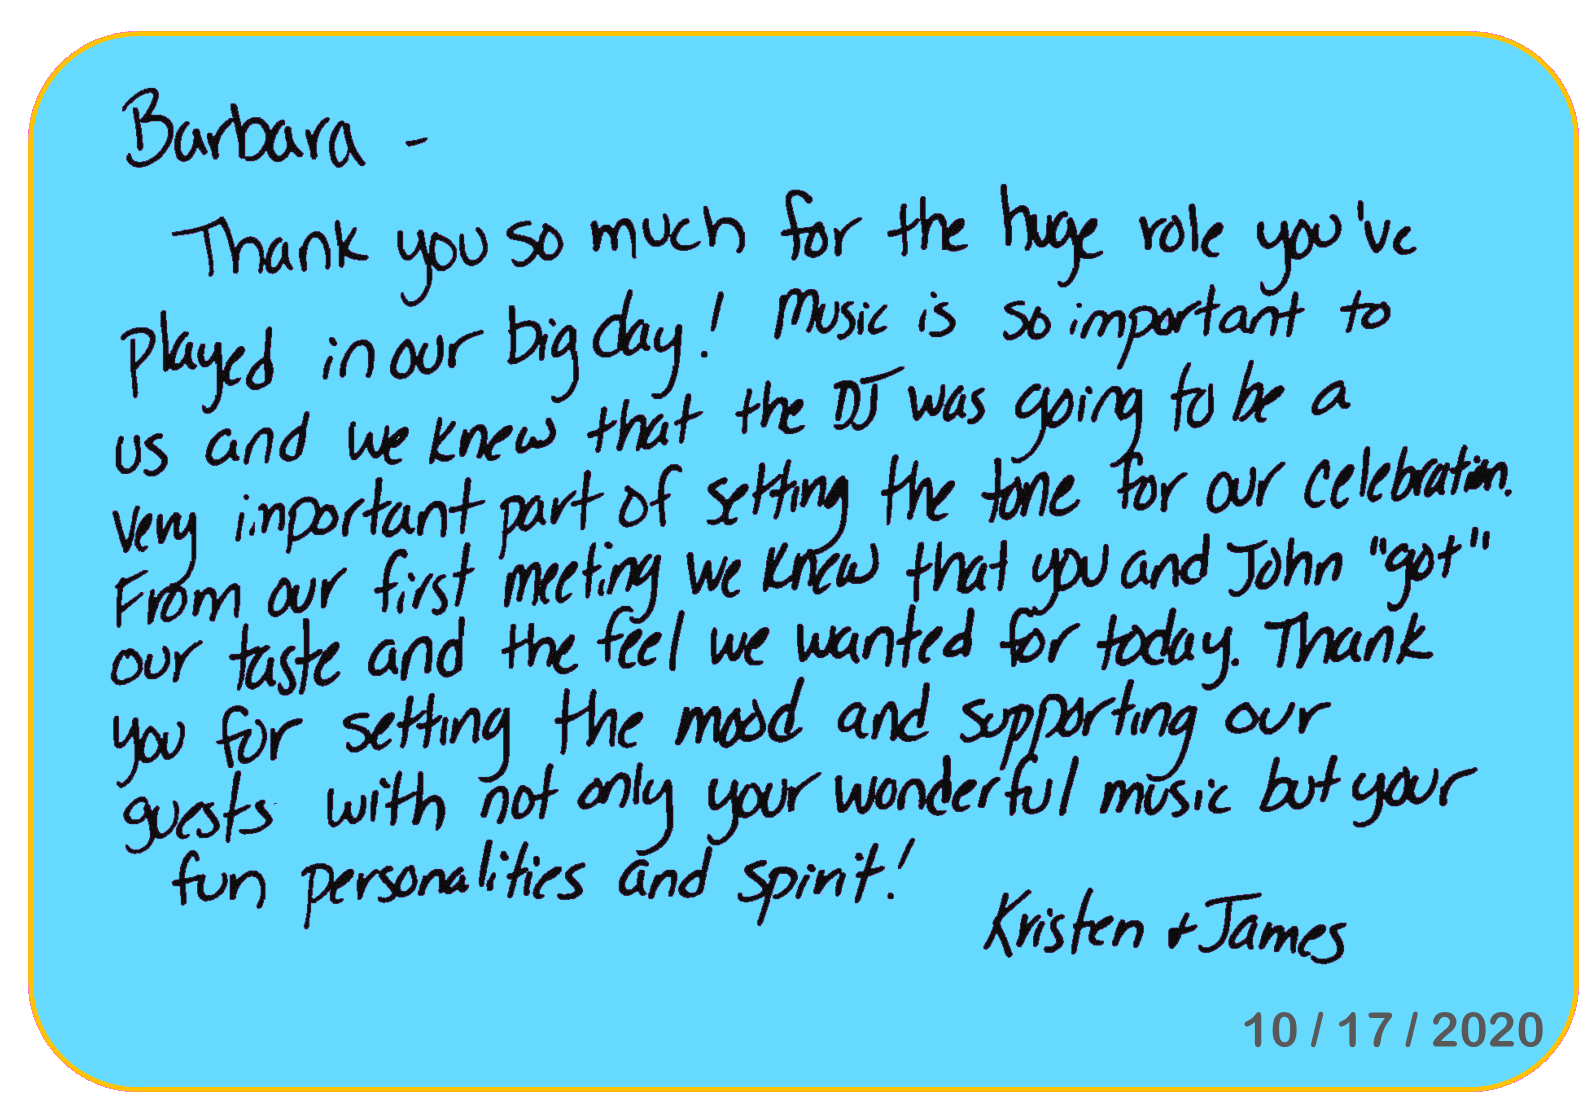 Barbara -
Thank you so much for the huge role you've
played in our big day! Music is so important to
us and we knew that the DJ was going to be a
very important part of setting the tone for our celebration.
From our first meeting we knew that you and John "got"
our taste and the feel we wanted for today. Thank
you for setting the mood and supporting our
guests with not only your wonderful music but your
fun personalities and spirit!
Kristen + James
10 / 17 / 2020